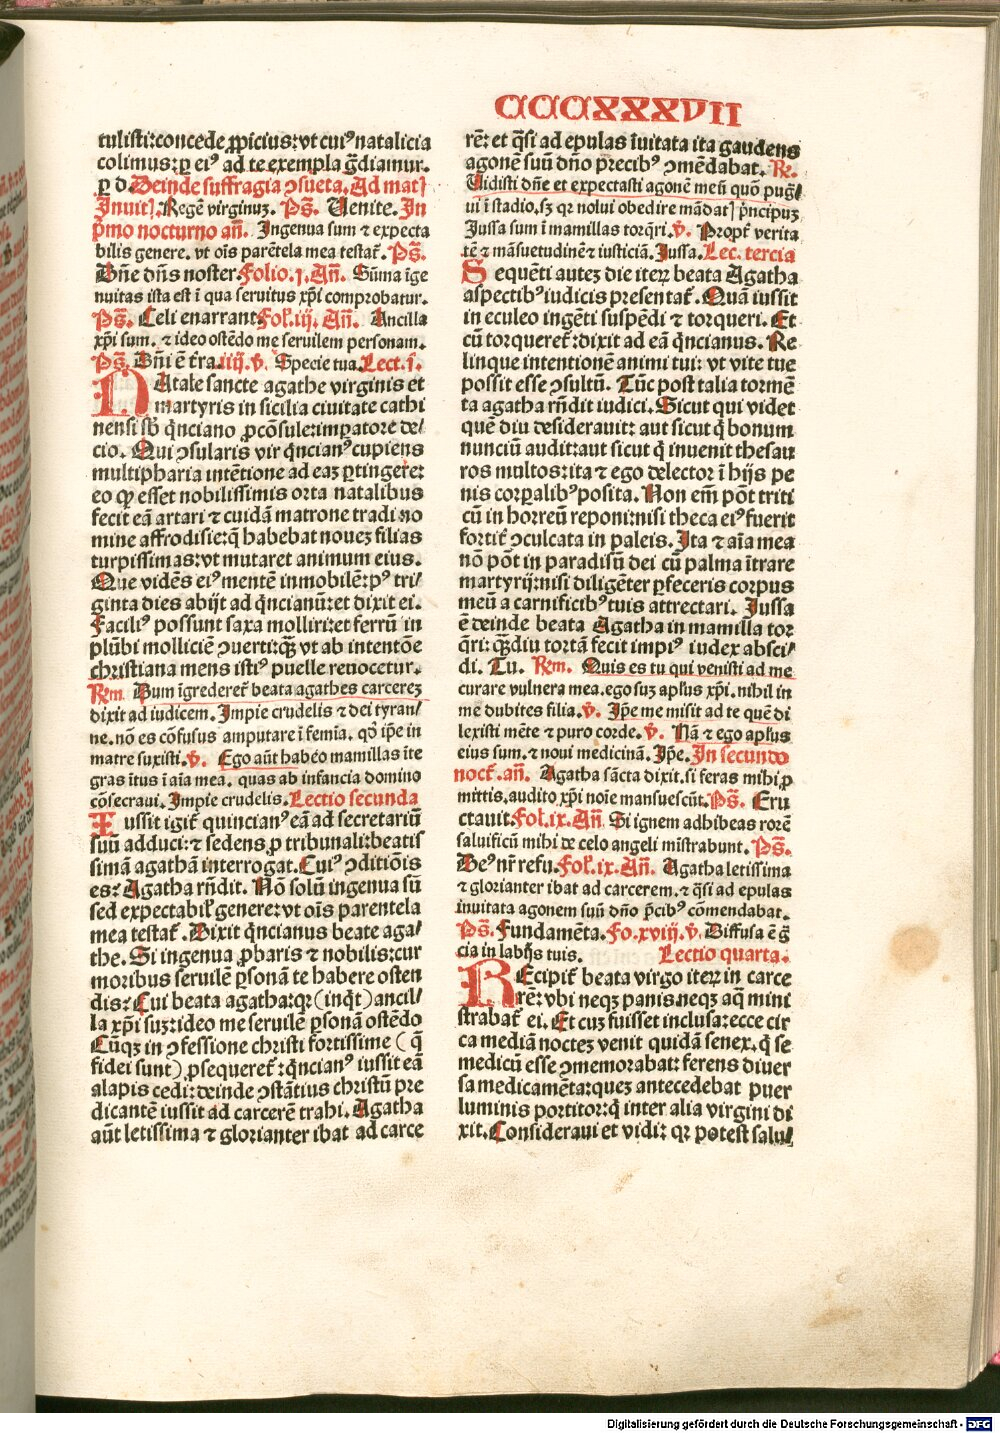 CCCXXXVII
tulisti:concede ꝓpicius:vt cuiꝰ natalicia
colimus:ꝑ eiꝰ ad te exempla gᷓdiamur.
ꝑ d. Deinde suffragia ꝯsueta. Ad matꝭ
Inuitꝭ. Regē virginuꝫ. Pš. Uenite. In
pͥmo nocturno añ. Ingenua sum et expecta
bilis genere. vt oīs parētela mea testat᷑. Pš.
Dñe dñs noster. Folio.j. Añ. Sūma īge
nuitas ista est ī qua seruitus xp̄i comprobatur.
Pš. Celi enarrant. Fol.iij. Añ. Ancilla
xp̄i sum. ⁊ ideo ostēdo me seruilem personam.
Pš. Dñi ē t̄ra.iiij. v̄. Specie tua. Lect.ī.
NAtale sancte agathe virginis et
martyris in sicilia ciuitate cathi
nensi sb̄ qͥnciano ꝓcōsule:impatore de/
cio. Qui ꝯsularis vir qͥncianꝰ cupiens
multipharia intētione ad eaꝫ ꝑtingere:
eo ꝙ esset nobilissimis orta natalibus
fecit eā artari ⁊ cuidā matrone tradi no
mine affrodisie:q̄ habebat noueꝫ filias
turpissimas:vt mutaret animum eius.
Que vidēs eiꝰ mentē inmobilē:pꝰ tri/
ginta dies abijt ad qͥncianū:et dixit ei.
Faciliꝰ possunt saxa molliri:et ferrū in
plūbi molliciē ꝯuerti:qᷓꝫ vt ab intentōe
christiana mens istiꝰ puelle reuocetur.
Rm̄. Dum īgrederet᷑ beata agathes carcereꝫ
dixit ad iudicem. Impie crudelis ⁊ dei tyran/
ne.nō es cōfusus amputare ī femīa. qď ip̄e in
matre suxisti. v̄. Ego aūt habeo mamillas īte
gras ītus ī aīa mea. quas ab infancia domino
cōsecraui. Impie crudelis. Lectio secunda
Iussit igit᷑ quincianꝰ eā ad secretariū
suū adduci:⁊ sedens ꝓ tribunali:beatis
simā agathā interrogat. Cuiꝰ ꝯditiōis
es: Agatha rn̄dit. Nō solū ingenua sū
sed expectabilꝭ genere:vt oīs parentela
mea testat᷑. Dixit qͥncianus beate aga/
the. Si ingenua ꝓbaris ⁊ nobilis:cur
moribus seruilē ꝑsonā te habere osten
dis: Cui beata agatha:qꝛ (inqͥt) ancil/
la xp̄i suꝫ:ideo me seruilē ꝑsonā ostēdo
Cūqꝫ in ꝯfessione christi fortissime (q̄
fidei sunt) ꝓsequeret᷑:qͥncianꝰ iussit eā
alapis cedi:deinde ꝯstātius christū pre
dicantē iussit ad carcerē trahi. Agatha
aūt letissima ⁊ glorianter ibat ad carce
rē: et qᷓsi ad epulas īuitata ita gaudens
agonē suū dn̄o precibꝰ ꝯmēdabat. Rͤ.
Uidisti dñe et expectasti agonē meū quō pug/
ui ī stadio, sꝫ qꝛ nolui obedire mādatꝭ pͥncipuꝫ
Jussa sum ī mamillas torqͥri. v̄. Propt̄ verita
tē ⁊ māsuetudinē ⁊ iusticiā. Jussa. Lec. tercia
Sequēti auteꝫ die iteꝝ beata Agatha
aspectibꝰ iudicis presentat᷑. Quā iussit
in eculeo ingēti suspēdi ⁊ torqueri. Et
cū torqueret᷑:dixit ad eā qͥncianus. Re
linque intentionē animi tui: vt vite tue
possit esse ꝯsultū. Tūc post talia tormē
ta agatha rn̄dit iudici. Sicut qui videt
quē diu desiderauit: aut sicut qͥ bonum
nunciū audit:aut sicut qͥ inuenit thesau
ros multos:ita ⁊ ego delector ī hijs pe
nis corꝑalibꝰ posita. Non em̄ pōt triti
cū in horreū reponi:nisi theca eiꝰ fuerit
fortit᷑ ꝯculcata in paleis. Ita ⁊ aīa mea
nō pōt in paradisū dei cū palma ītrare
martyrij:nisi diligēter ꝑfeceris corpus
meū a carnificibꝰ tuis attrectari. Iussa
ē deinde beata Agatha in mamilla tor
qͥri: qᷓꝫdiu tortā fecit impiꝰ iudex absci/
di. Tu. Rm̄. Quis es tu qui venisti ad me
curare vulnera mea. ego suꝫ apl̄us xp̄i. nihil in
me dubites filia. v̄. Ip̄e me misit ad te quē di
lexisti mēte ⁊ puro corde. v̄. Nā ⁊ ego apl̄us
eius sum. ⁊ noui medicinā. Ip̄e. In secundo
noct᷑. añ. Agatha sācta dixit. si feras mihi ꝓ
mittis. audito xp̄i noīe mansuescūt. Pš. Eru
ctauit. Fol.ix. Añ. Si ignem adhibeas rorē
saluificū mihi de celo angeli mīstrabunt. Pš.
Deꝰ nr̄ refu. Fol.ix. Añ. Agatha letissima
⁊ glorianter ibat ad carcerem. ⁊ qᷓsi ad epulas
inuitata agonem suū dn̄o p̄cibꝰ cōmendabat.
Pš. Fundamēta. Fo.xviij. v̄. Diffusa ē ḡ
cia in labijs tuis. Lectio quarta.
REcipit᷑ beata virgo iteꝝ in carce
rē: vbi neqꝫ panis.neqꝫ aq̄ mini
strabat᷑ ei. Et cuꝫ fuisset inclusa:ecce cir
ca mediā nocteꝫ venit quidā senex. qͥ se
medicū esse ꝯmemorabat: ferens diuer
sa medicamēta:queꝫ antecedebat puer
luminis portitor:qͥ inter alia virgini di
xit. Consideraui et vidi: qꝛ potest salu/
Digitalisierung gefördert durch die Deutsche Forschungsgemeinschaft - DFG